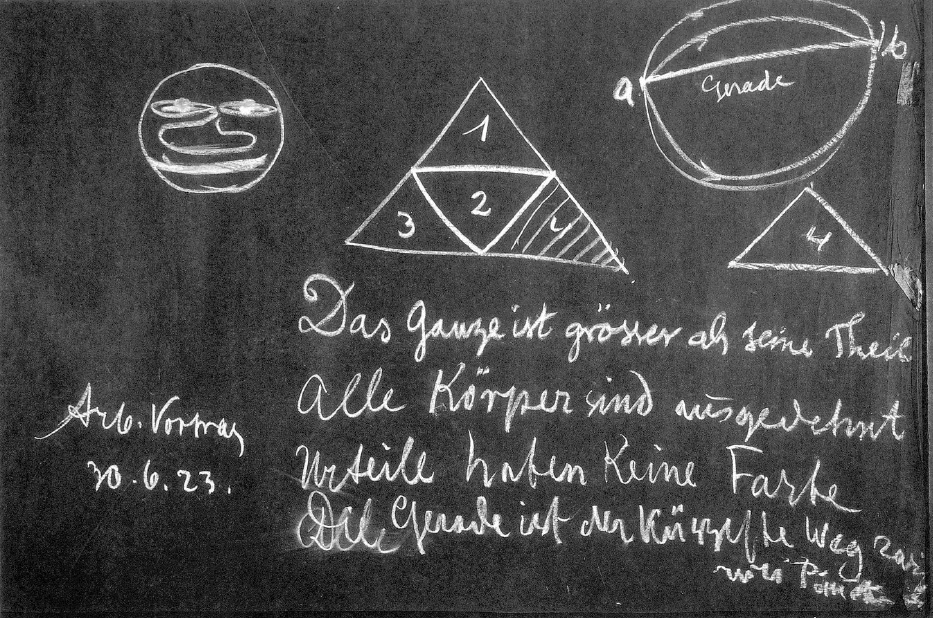 a
b
Gerade
1
3
2
4
4
Das Ganze ist grösser als seine Theile
Alle Körper sind ausgedehnt
Arb. Vortrag
30.6.23.
Urteile haben Keine Farbe
Die Gerade ist der Kürzeste Weg